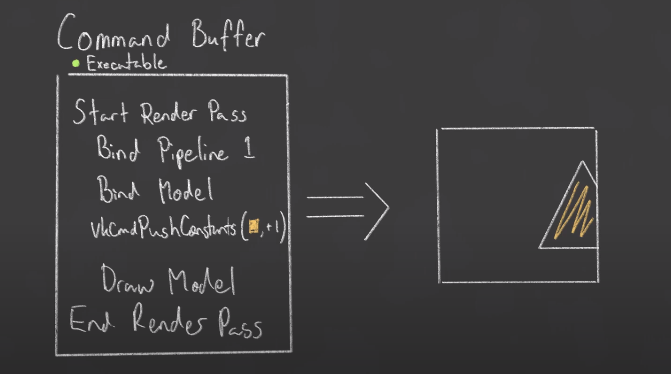 Command Buffer
Executable
Start Render Pass
Bind Pipeline 1
Bind Model
vkCmdPushConstants( , +1)
Draw Model
End Render Pass